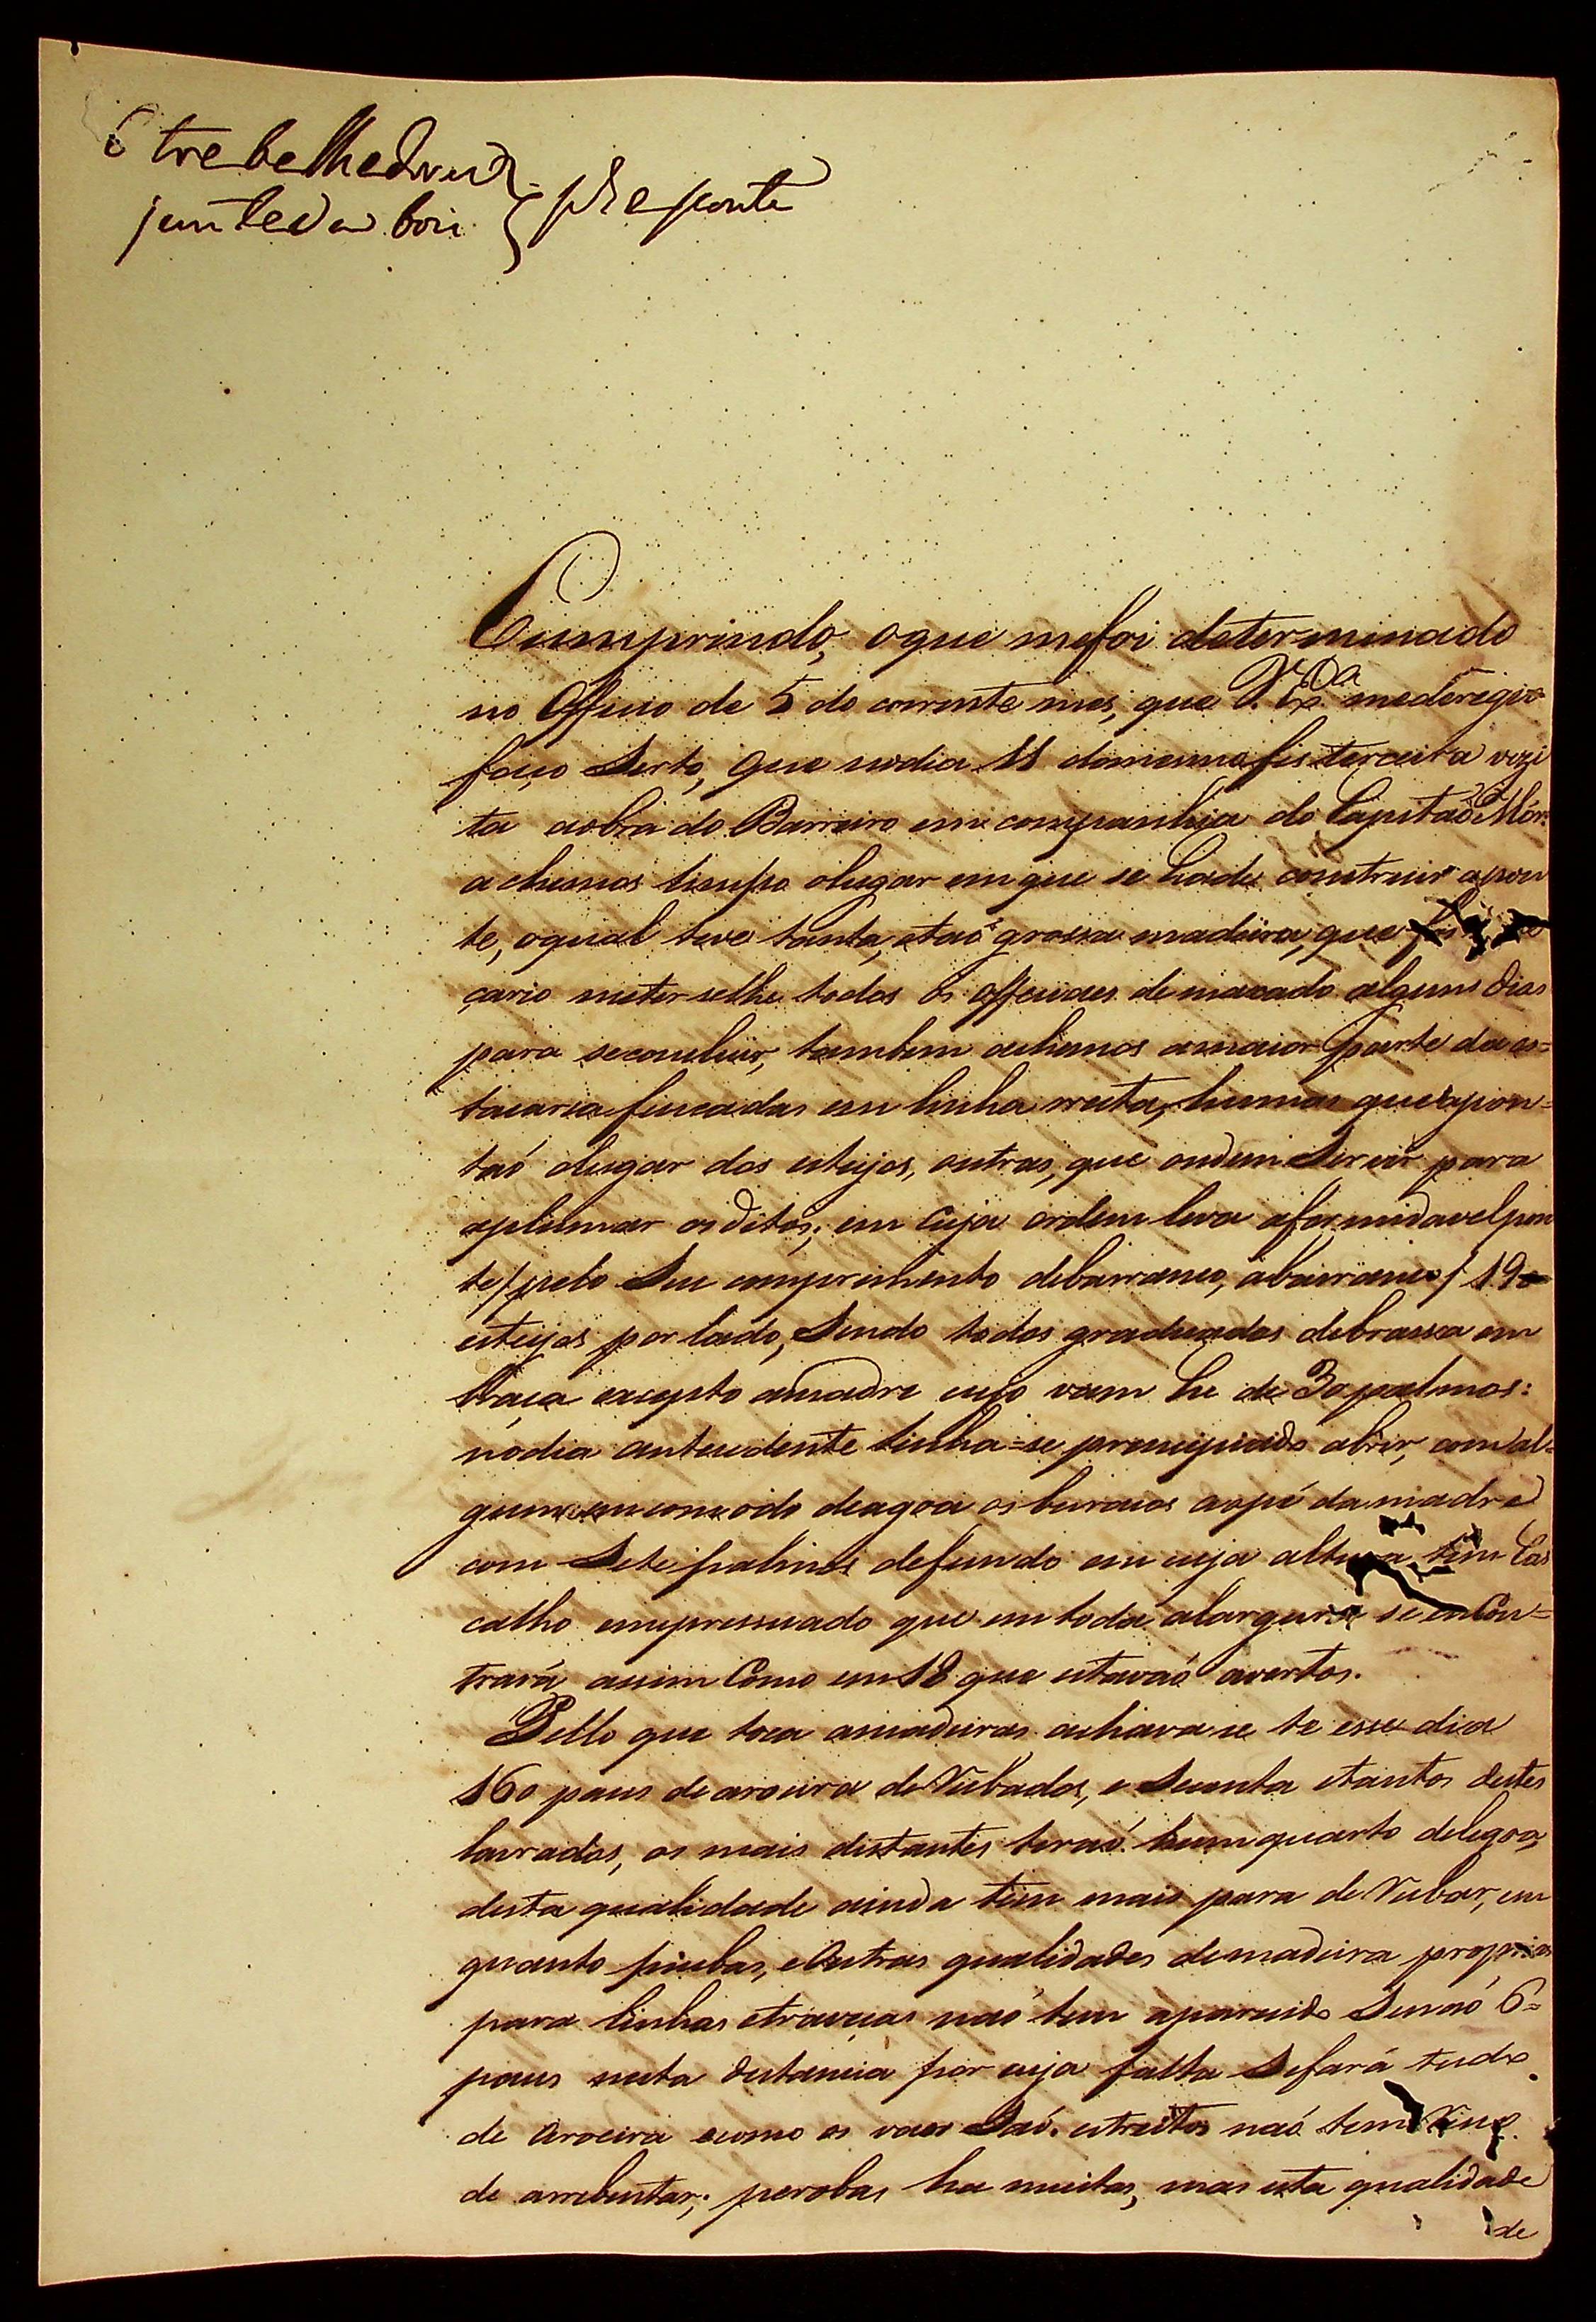 6 trebelhedrus
junteda boi } pª e ponte
Cumprindo, oque mefoi determinado
no Officio de 5 do corrente mes, que V. Exª mederegio
faço Serto, que nodia 11 domesmo fis terceira vezi
ta aobra do Barreiro em companhia do Capitaõ Mór.
achemos limpo olugar emque se hade construir apon
te, oqual teve tanta, etaõ grossa madeira, que foi
çario meter selhe todos os officiaes demaxado alguns dias
para seconcluir, tambem achemos amaior parte da es=
tacaria fincadas em linha recta, humas que apon=
taõ olugar dos estejos, outras, que andem Servir para
aplumar os ditos; em Cuja ordem leva aformidavel pon
te/pelo Seu comprimento debarranco, abarranco/ 19
esteyos por lado, Sendo todos graduados debrassa em
braça excepto amadre cujo vam he de 30 palmos:
nodia antecedente tinha=se principiado abrir, com al=
gum encomodo deagoa os buracos aopé da madre
com Sete palmos defundo em cuja altura tem Cas
calho empressuado que em toda alargura se encon=
trará assim Como em 18 que estavaõ avertos.
Pello que toca amadeiras achava se te esse dia
160 paus de aroeira deRubados, e Secenta etantos destes
lavrados, os mais distantes teraõ hum quarto delegoa,
desta qualidade ainda tem mais para deRubar, em
quanto piubas, eoutras qualidades demadeira proprias
para linhas etraveças naõ tem aparecido Senaõ 6=
paus nesta distancia por cuja falta Sefará tudo
de Aroeira ecomo os vaos Saõ estreitos naõ tem Risco
de arrebentar; perobas ha muitas, mas esta qualidade
de